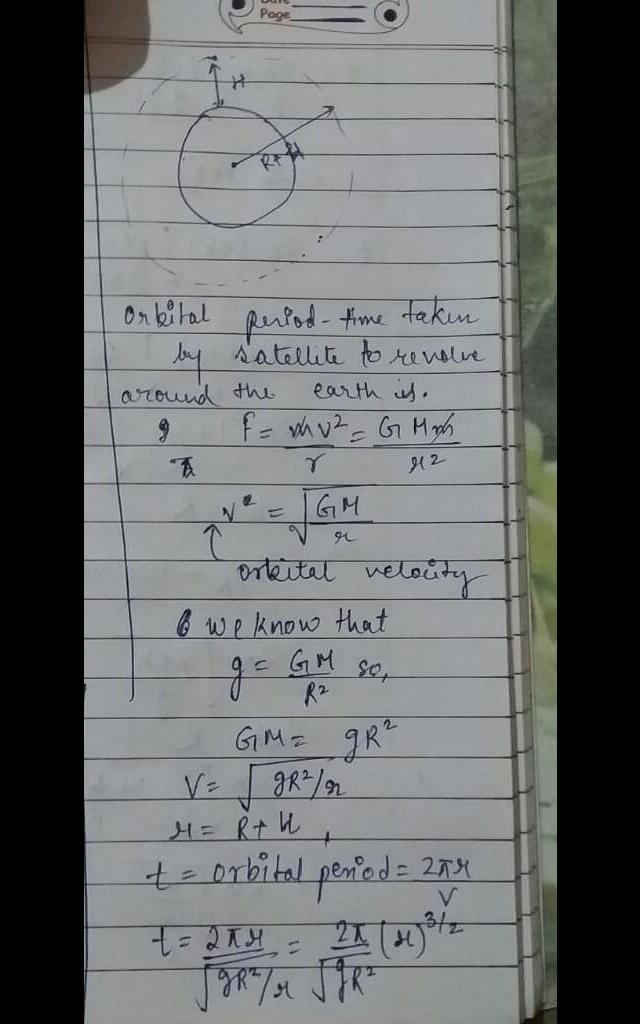 Date
Page
H
R+H
orbital period - time taken
by satellite to revolve
around the earth is.
F = mv²/r = GMm/r²
v = √(GM/r)
orbital velocity
we know that
g = GM/R² so,
GM = gR²
V = √(gR²/r)
r = R+H,
t = orbital period = 2πr/V
t = 2πr/√(gR²/r) = 2π/√(gR²) (r)^3/2